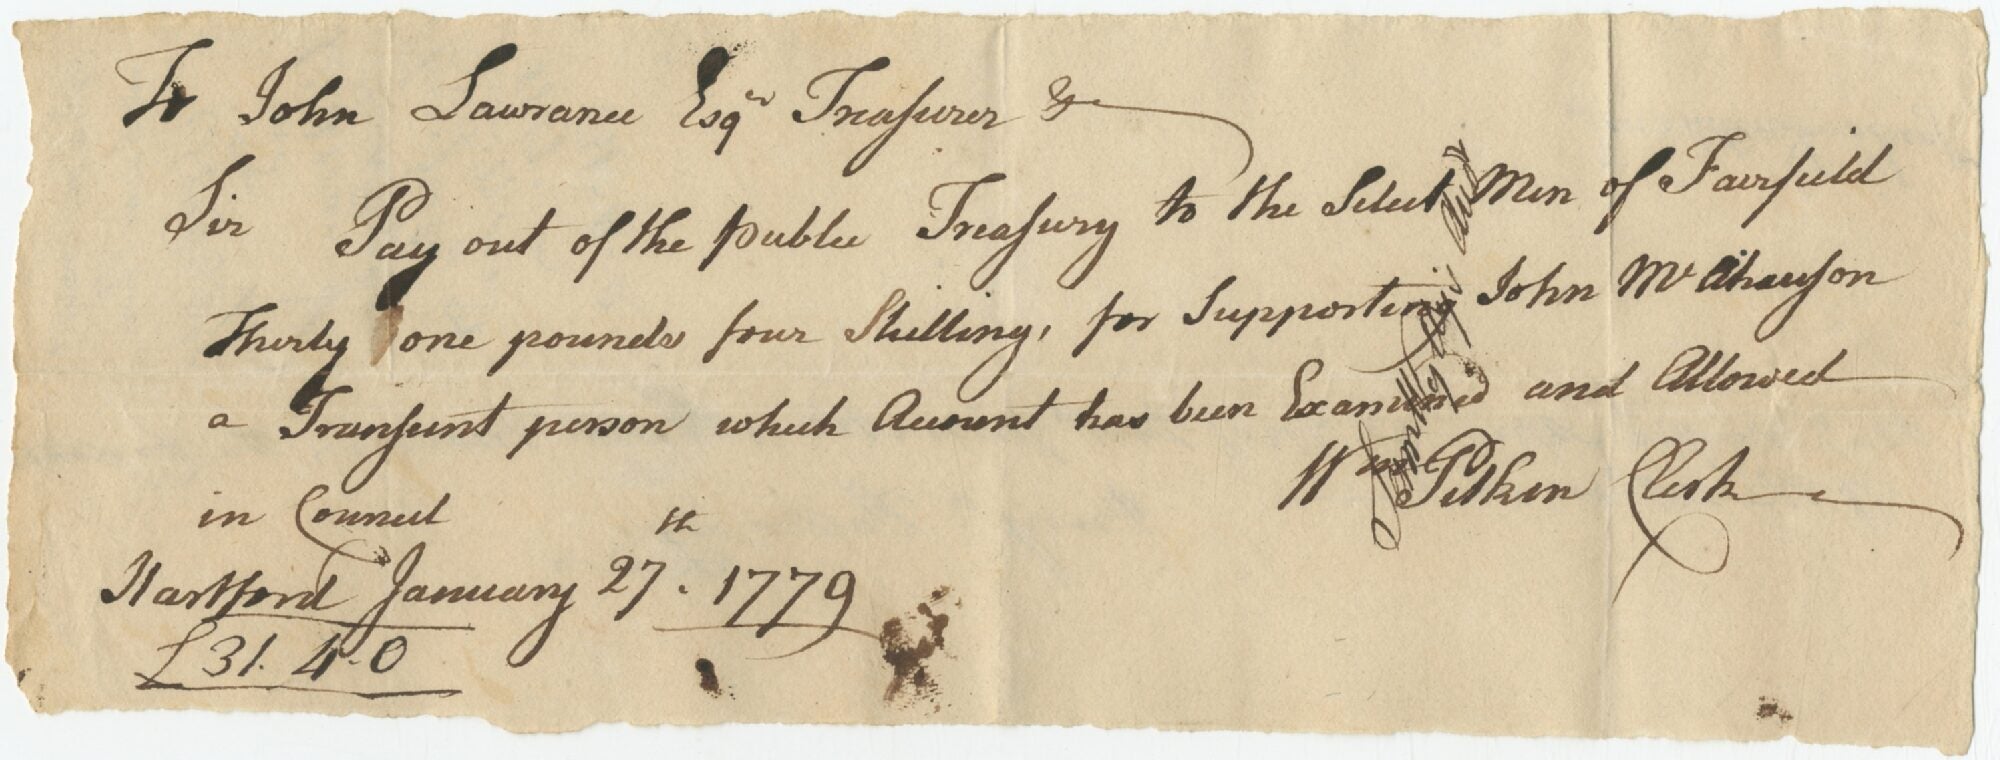 To John Lawrance Esqr Treasurer &c
Sir Pay out of the public Treasury to the Select Men of Fairfield
Thirty one pounds four Shilling, for Supporting John Mc
a Transient person which Account has been Examined and Allowed
in Council
Wm Pitkin Clerk
Hartford January 27th. 1779
£31. 4. 0